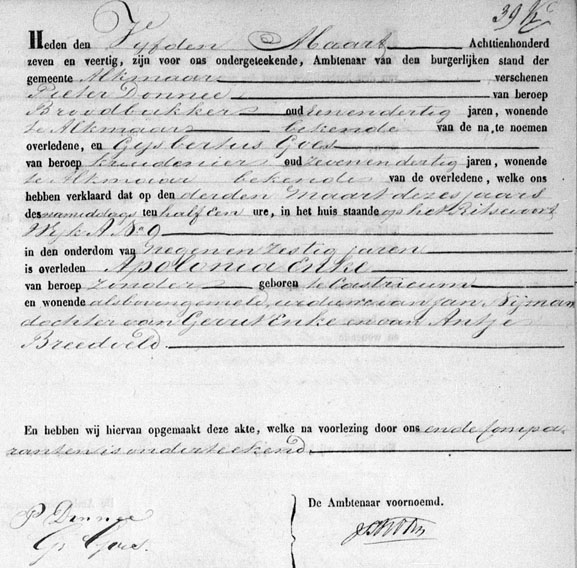 Heden den Vyfden Maart Achttienhonderd
zeven en veertig, zijn voor ons ondergeteekende, Ambtenaar van den burgerlijken stand der
gemeente Alkmaar verschenen
Pieter Donnee van beroep
Broodbakker oud eenendertig jaren, wonende
te Alkmaar bekende van de na te noemen
overledene, en Gysbertus Goes
van beroep kruidenier oud zevenendertig jaren, wonende
te Alkmaar bekende van de overledene, welke ons
hebben verklaard dat op den derden Maart dezes jaars
des namiddags ten half een ure, in het huis staande op het Ritsevoort
Wyk A No 9
in den onderdom van negen en zestig jaren
is overleden Apolonia Enke
van beroep zonder geboren te Castricum
en wonende als bovengemeld, weduwe van Jan Nyman
dochter van Gerrit Enke en van Antje
Breedveld.
En hebben wij hiervan opgemaakt deze akte, welke na voorlezing door ons en de Compa-
ranten is onderteekend.
De Ambtenaar voornoemd.
P Donnee
G. Goes.